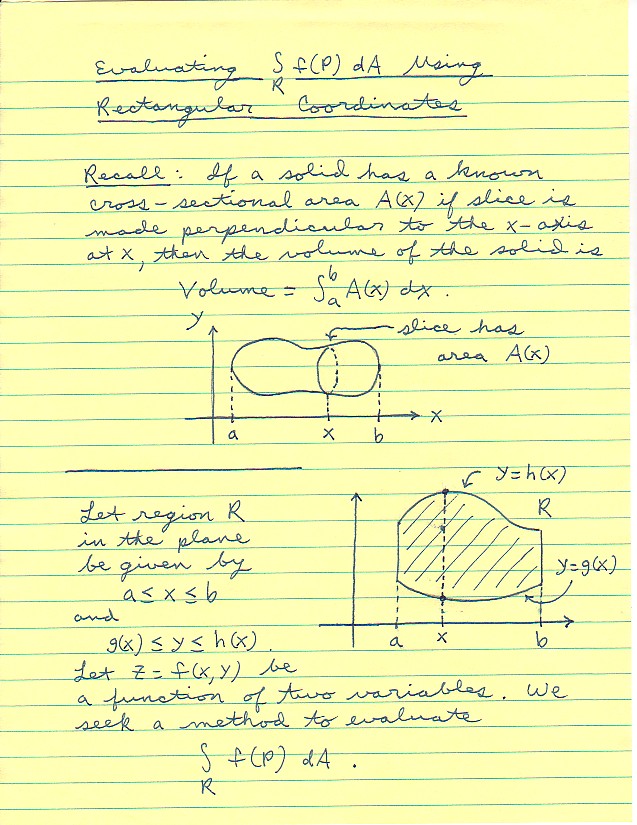 Evaluating ∫ f(P) dA Using
R
Rectangular Coordinates
Recall: If a solid has a known
cross-sectional area A(x) if slice is
made perpendicular to the x-axis
at x, then the volume of the solid is
Volume = ∫ₐᵇ A(x) dx.
y
slice has
area A(x)
x
a x b
y=h(x)
Let region R
R
in the plane
be given by
y=g(x)
a ≤ x ≤ b
and
a x b
g(x) ≤ y ≤ h(x).
Let z = f(x,y) be
a function of two variables. We
seek a method to evaluate
∫ f(P) dA.
R